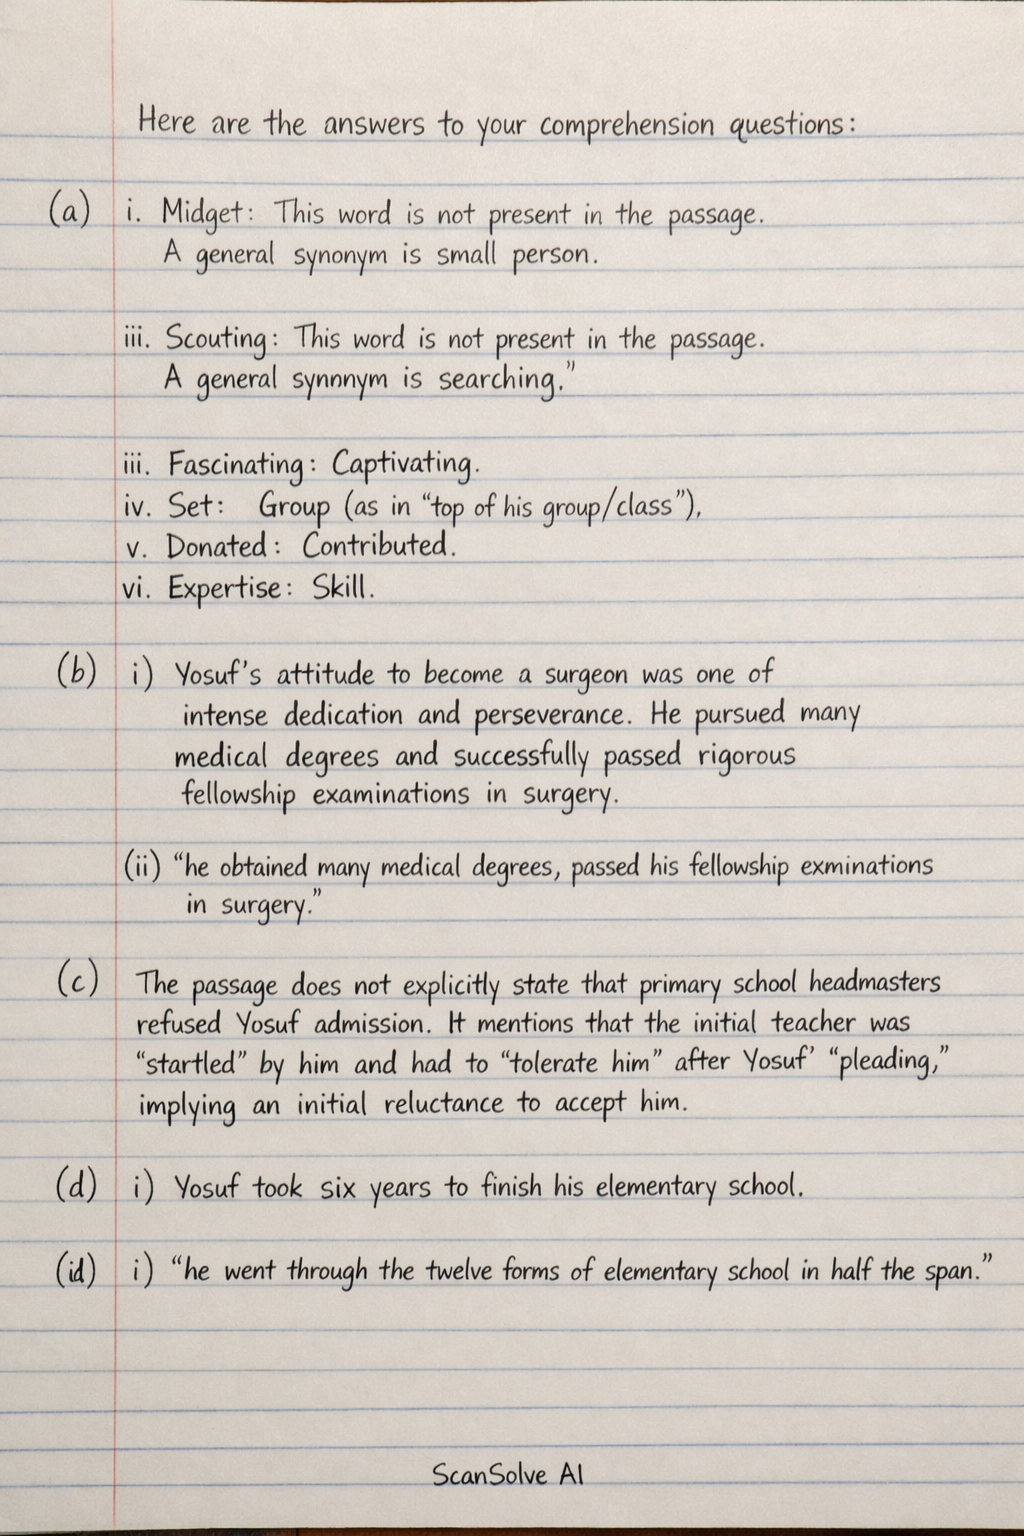 Here are the answers to your comprehension questions:
(a) i. Midget: This word is not present in the passage.
A general synonym is small person.
iii. Scouting: This word is not present in the passage.
A general synnnym is searching.”
iii. Fascinating: Captivating.
iv. Set: Group (as in “top of his group/class”),
v. Donated: Contributed.
vi. Expertise: Skill.
(b) i) Yosuf's attitude to become a surgeon was one of
intense dedication and perseverance. He pursued many
medical degrees and successfully passed rigorous
fellowship examinations in surgery.
(ii) “he obtained many medical degrees, passed his fellowship exminations
in surgery.”
(c) The passage does not explicitly state that primary school headmasters
refused Yosuf admission. It mentions that the initial teacher was
“startled” by him and had to “tolerate him” after Yosuf' “pleading,”
implying an initial reluctance to accept him.
(d) i) Yosuf took six years to finish his elementary school.
(id) i) “he went through the twelve forms of elementary school in half the span.”
ScanSolve AI